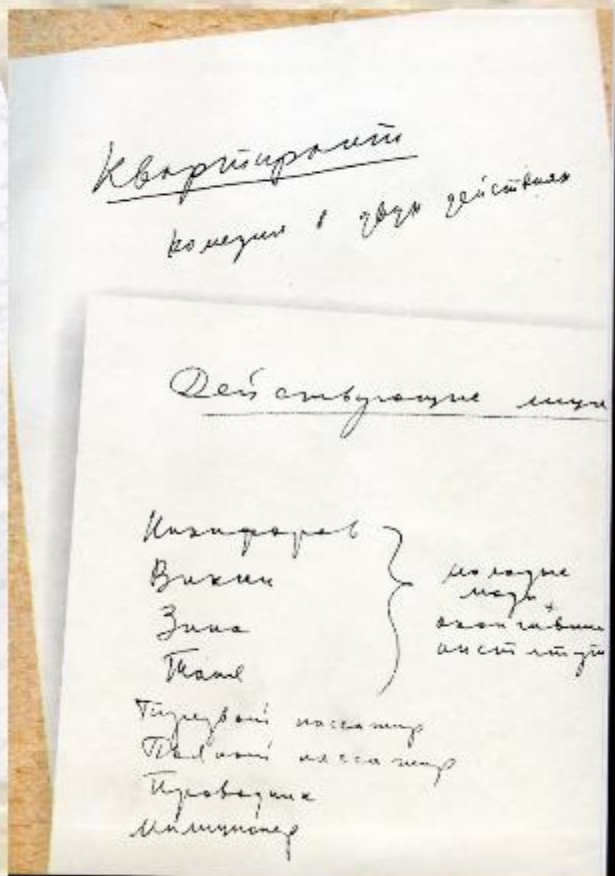 Квартирант
комедия в двух действиях
Действующие лица
Никифоров
Викин
Зина
Таня
молодые
люди,
окончившие
институт
Трезвый пассажир
Пьяный пассажир
Проводник
Милиционер